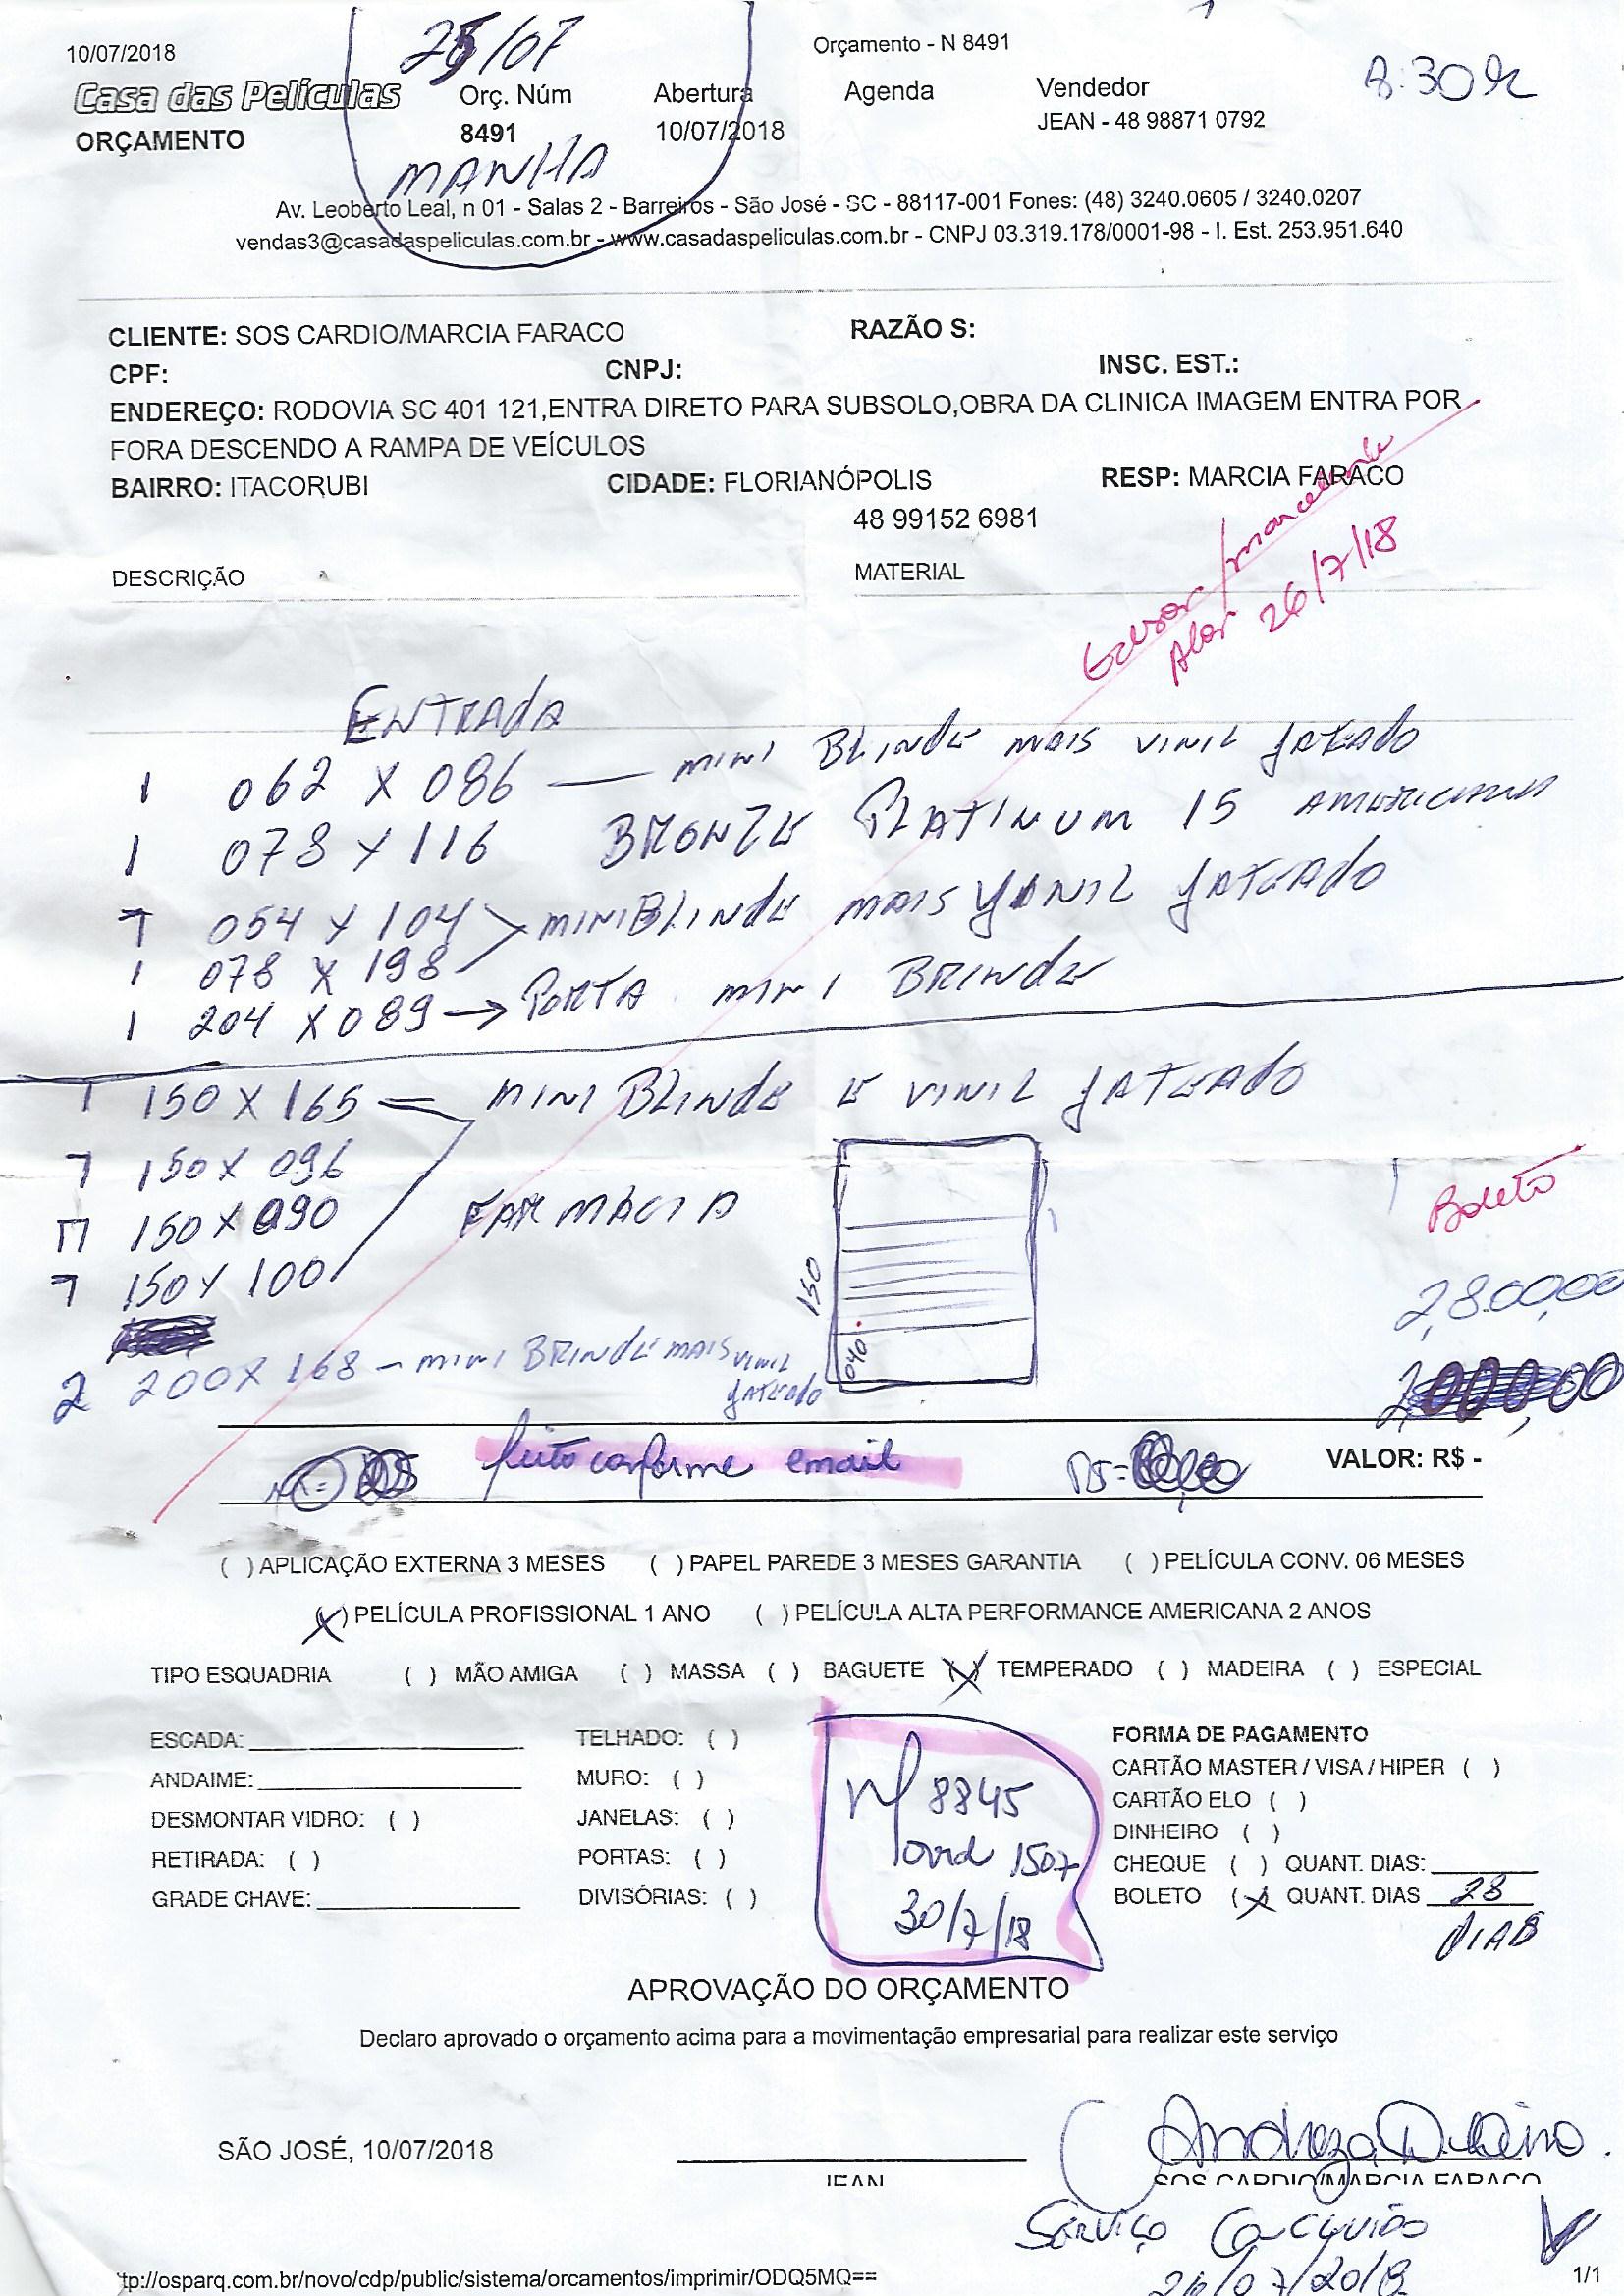 10/07/2018
25/07
Orçamento - N 8491
8:30h
Casa das Películas
Orç. Núm
Abertura
Agenda
Vendedor
ORÇAMENTO
8491
10/07/2018
JEAN - 48 98871 0792
MANHA
Av. Leoberto Leal, n 01 - Salas 2 - Barreiros - São José - SC - 88117-001 Fones: (48) 3240.0605 / 3240.0207
vendas3@casadaspeliculas.com.br - www.casadaspeliculas.com.br - CNPJ 03.319.178/0001-98 - I. Est. 253.951.640
CLIENTE: SOS CARDIO/MARCIA FARACO
RAZÃO S:
CPF:
CNPJ:
INSC. EST.:
ENDEREÇO: RODOVIA SC 401 121,ENTRA DIRETO PARA SUBSOLO,OBRA DA CLINICA IMAGEM ENTRA POR
FORA DESCENDO A RAMPA DE VEÍCULOS
BAIRRO: ITACORUBI
CIDADE: FLORIANÓPOLIS
RESP: MARCIA FARACO
48 99152 6981
26/7/18
DESCRIÇÃO
MATERIAL
ENTRADA
1 062 X 086 — MINI BLINDE MAIS VINIL JATEADO
1 078 X 116 BRONZE PLATINUM 15 AMERICANA
1 054 X 104 MINIBLINDE MAIS VINIL JATEADO
1 078 X 198
1 204 X 089 → PORTA MINI BRINDE
1 150 X 165 — MINI BLINDE E VINIL JATEADO
1 150 X 096
150 X 090 FARMÁCIA
1 150 X 100
Boleto
150
040
2,800,00
2 200 X 168 - MINI BRINDE MAIS VINIL
JATEADO
feito conforme email
VALOR: R$ -
( ) APLICAÇÃO EXTERNA 3 MESES ( ) PAPEL PAREDE 3 MESES GARANTIA ( ) PELÍCULA CONV. 06 MESES
(X) PELÍCULA PROFISSIONAL 1 ANO ( ) PELÍCULA ALTA PERFORMANCE AMERICANA 2 ANOS
TIPO ESQUADRIA ( ) MÃO AMIGA ( ) MASSA ( ) BAGUETE (X) TEMPERADO ( ) MADEIRA ( ) ESPECIAL
ESCADA:
TELHADO: ( )
FORMA DE PAGAMENTO
ANDAIME:
MURO: ( )
CARTÃO MASTER / VISA / HIPER ( )
DESMONTAR VIDRO: ( )
JANELAS: ( )
CARTÃO ELO ( )
DINHEIRO ( )
RETIRADA: ( )
PORTAS: ( )
CHEQUE ( ) QUANT. DIAS:
GRADE CHAVE:
DIVISÓRIAS: ( )
BOLETO (X) QUANT. DIAS 28
DIAS
nf 8845
1507
30/7/18
APROVAÇÃO DO ORÇAMENTO
Declaro aprovado o orçamento acima para a movimentação empresarial para realizar este serviço
SÃO JOSÉ, 10/07/2018
JEAN
SOS CARDIO/MARCIA FARACO
Serviço
26/07/2018
tp://osparq.com.br/novo/cdp/public/sistema/orcamentos/imprimir/ODQ5MQ==
1/1